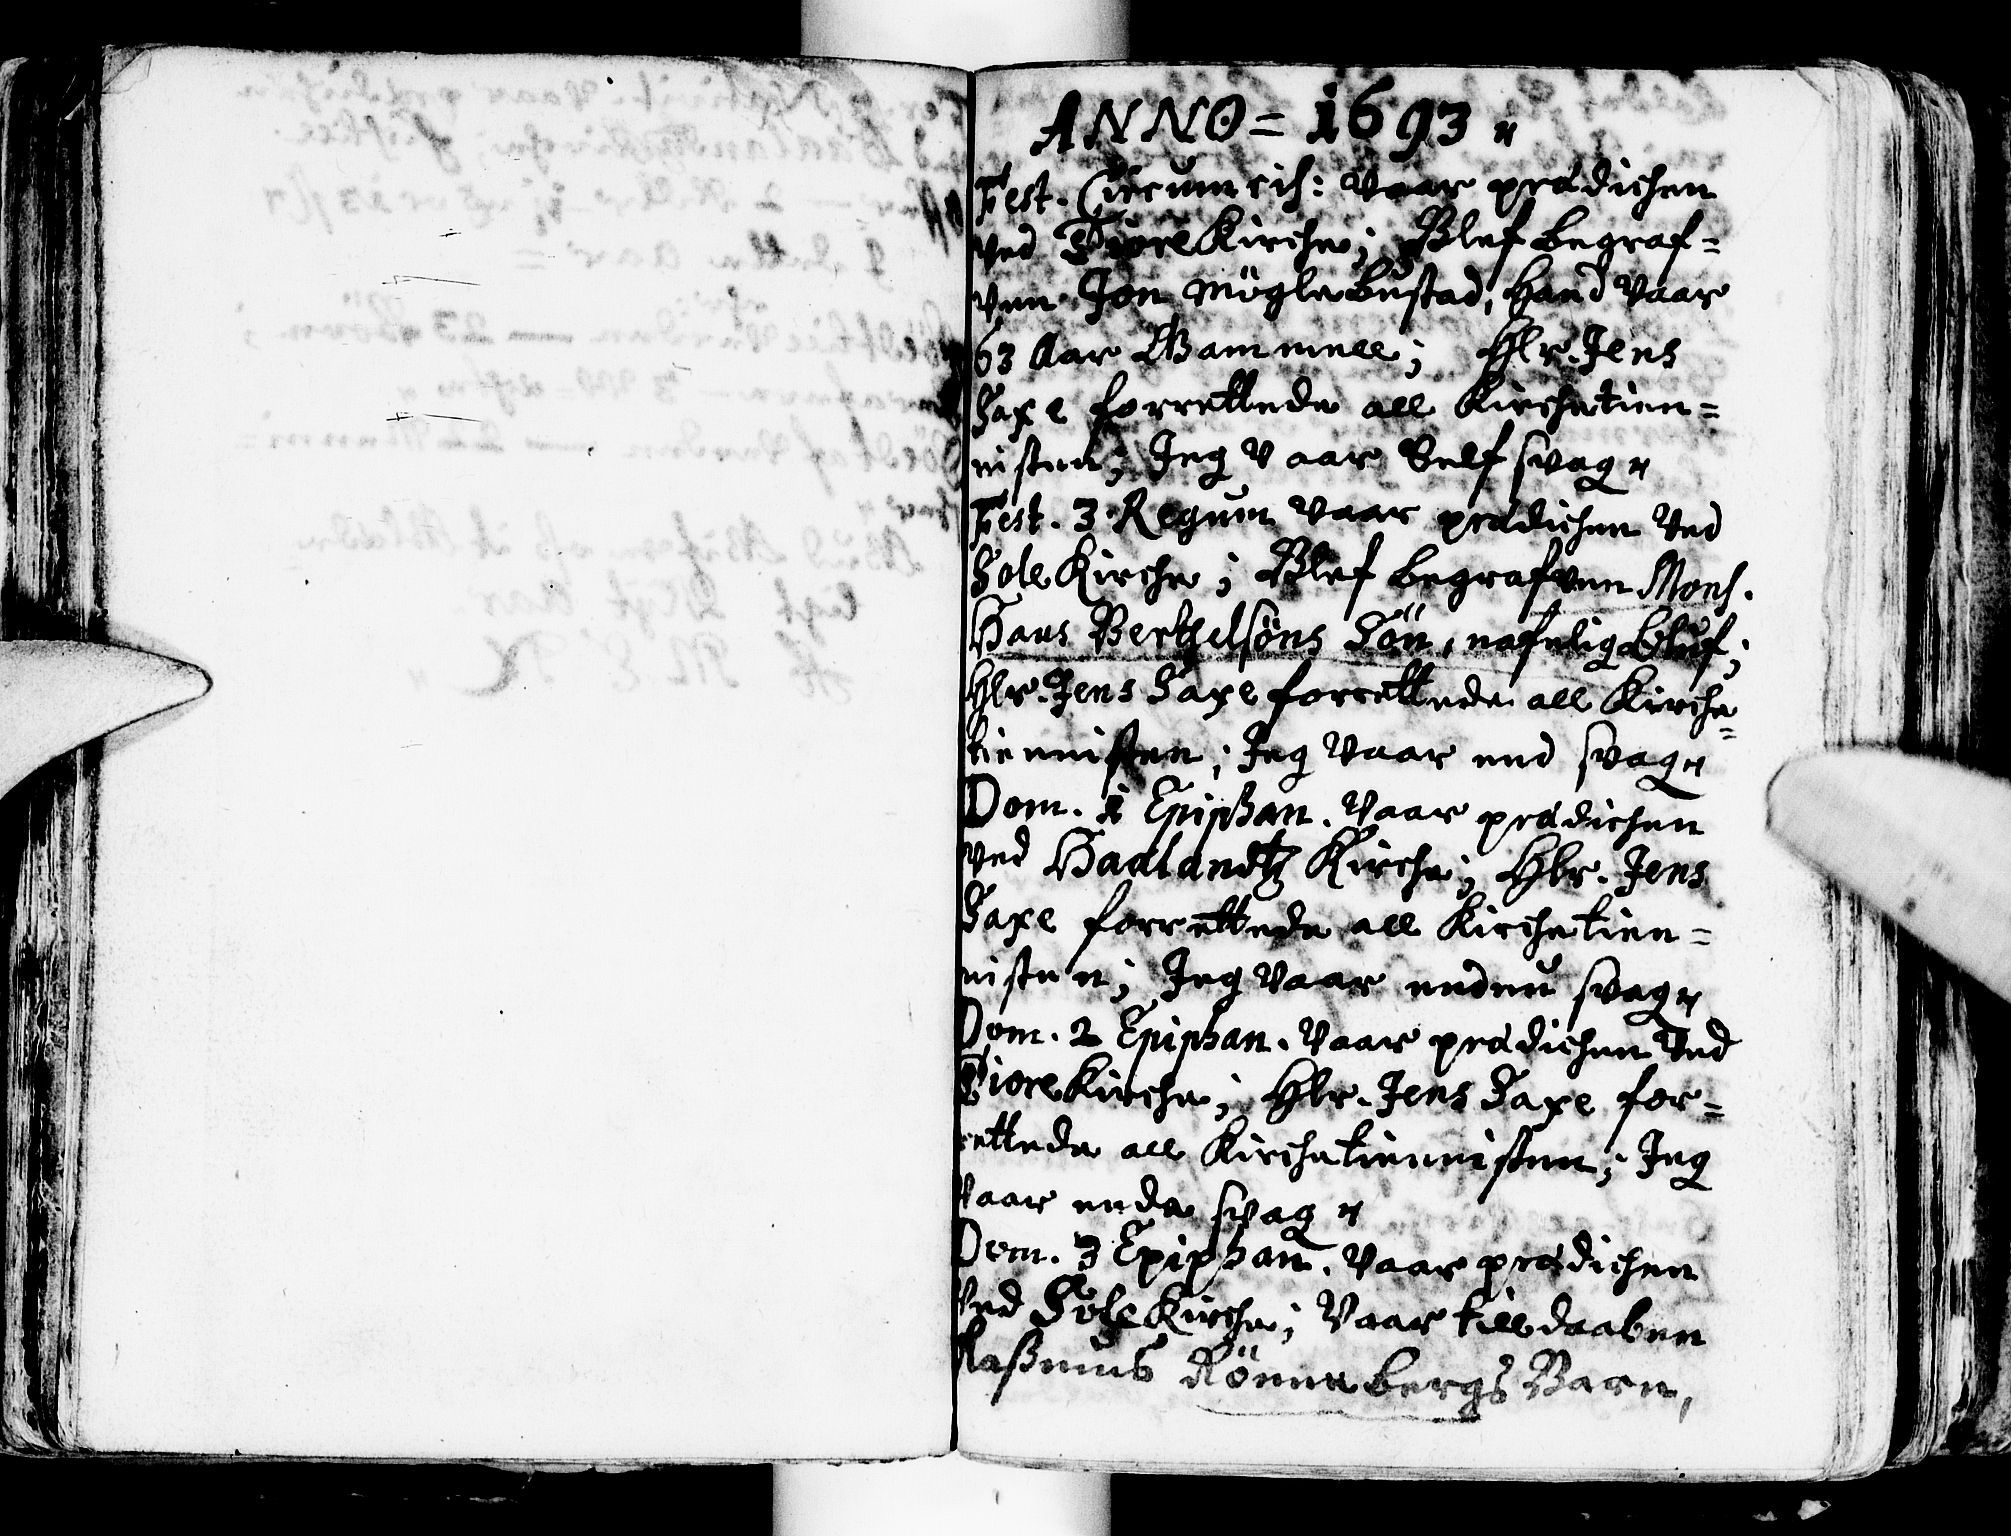 ANNO = 1693 "
Fest. Circumcis: Vaar prædichen
ved Tiore Kirche; Blef begraf=
ven Jon Møglebustad, Hand Vaar
63 Aar Gammell; Hlr. Jens
Saxe forrettede all Kirchetien=
nisten; Jeg Vaar self svag "
Fest. 3 Regum Vaar prædichen Ved
Sole Kirche; Blef begrafven Mons.
Hans Berthelsøns Søn, nafnlig Oluf;
Hlr. Jens Saxe forrettede all Kirche=
tiennisten; Jeg Vaar end svag "
Dom. 1 Epiphan. Vaar prædichen
ved Haalandtz Kirche; Hlr. Jens
Saxe forrettede all Kirchetien=
nisten; Jeg Vaar endnu svag "
Dom. 2 Epiphan. Vaar prædichen Ved
Tiore Kirche; Hlr. Jens Saxe for=
rettede all Kirchetiennisten; Jeg
Vaar enda svag "
Dom. 3 Epiphan. Vaar prædichen
Ved Sole Kirche; Vaar till daaben
Raßmus Rønnebergs Barn,